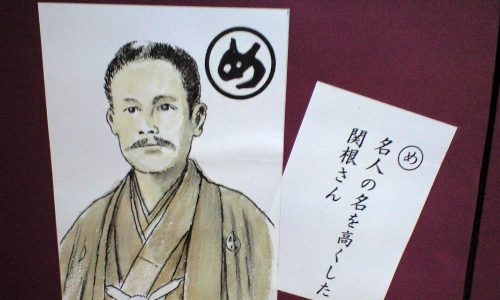 め
め
名人の名を高くした
関根さん